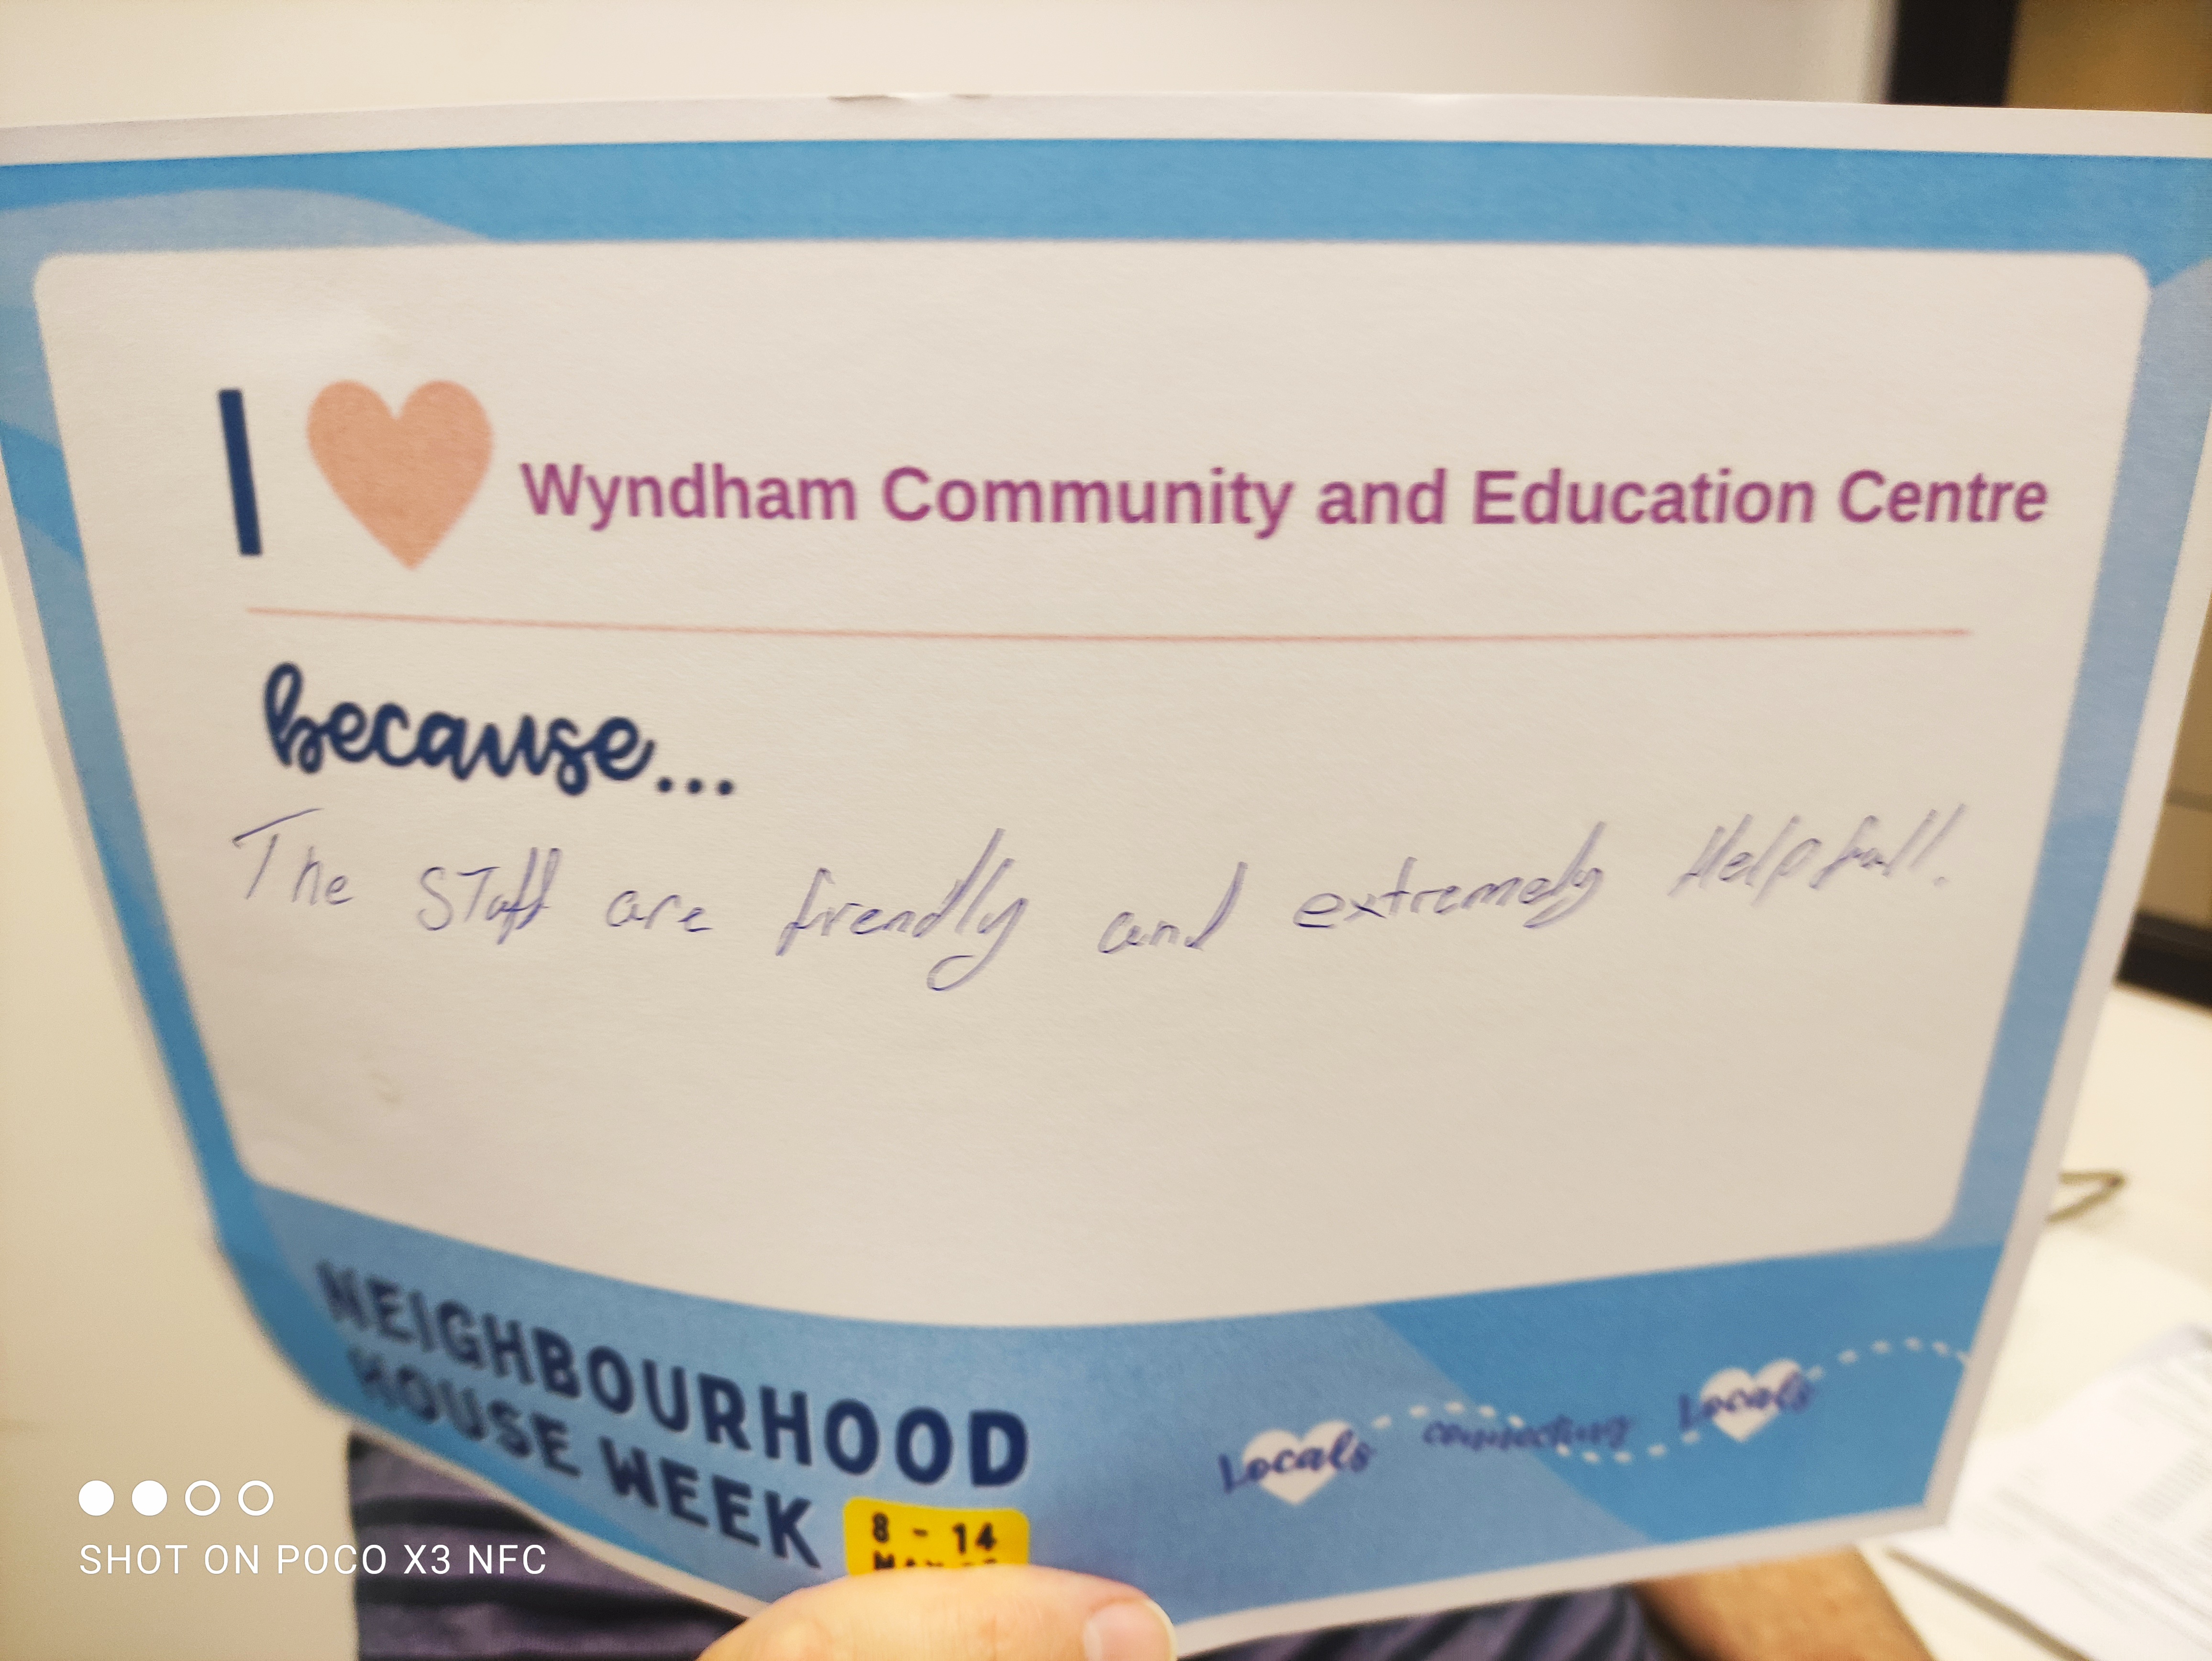 I Wyndham Community and Education Centre
because...
The Staff are frendly and extremely Helpfull.
NEIGHBOURHOOD
HOUSE WEEK
8 - 14
Locals connecting Locals
SHOT ON POCO X3 NFC